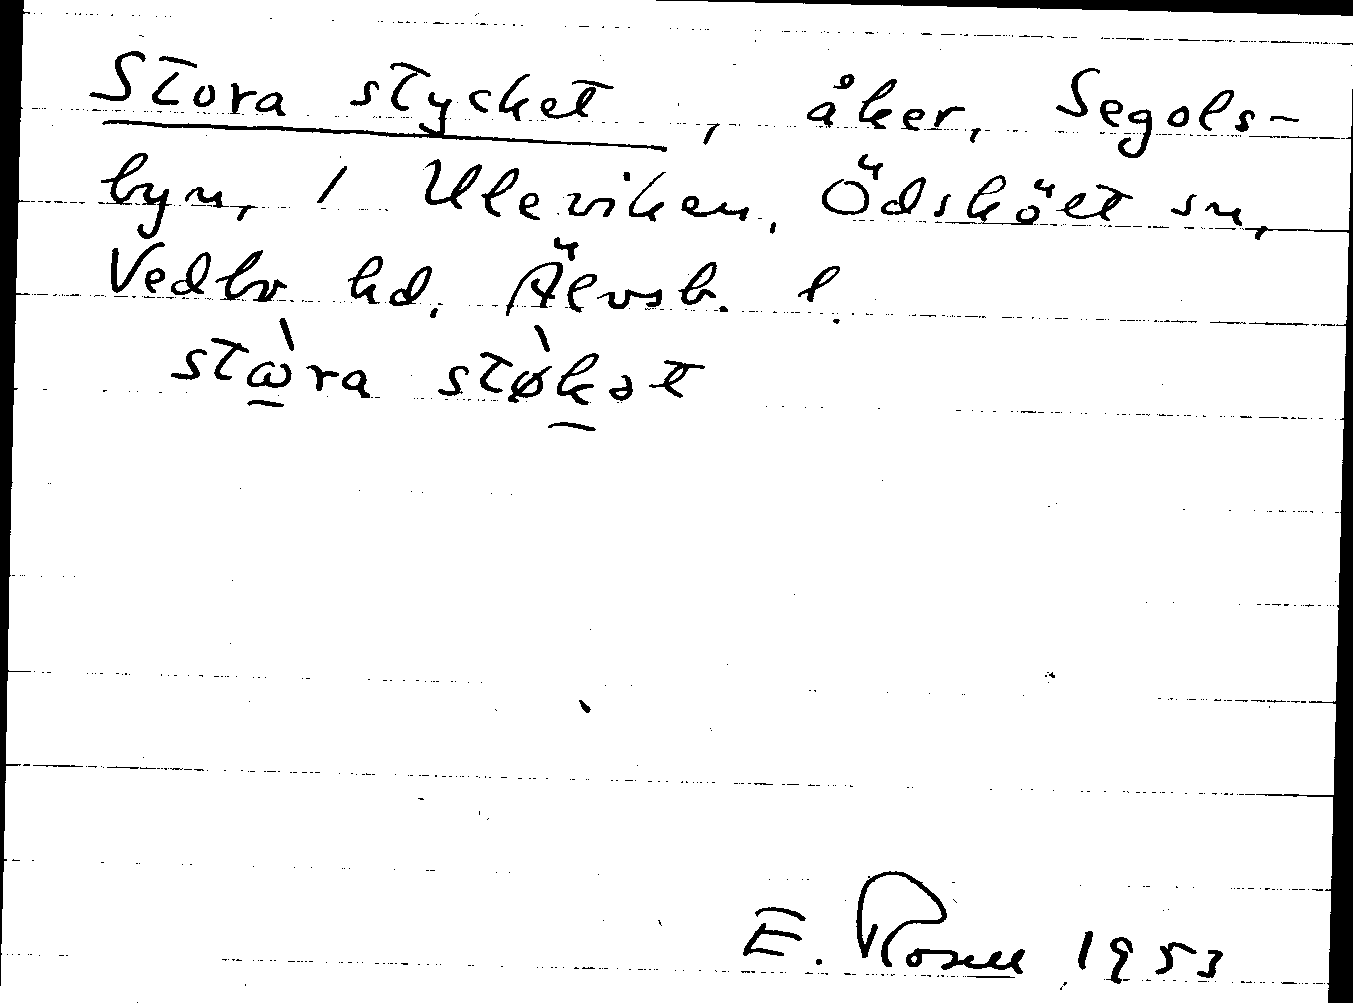 Stora stycket, åker, Segols-
byn, 1 Uleviken, Ödskölt sn,
Vedbo hd, Älvsb. l.
stὼra stø̀kət
E. Rosell 1953